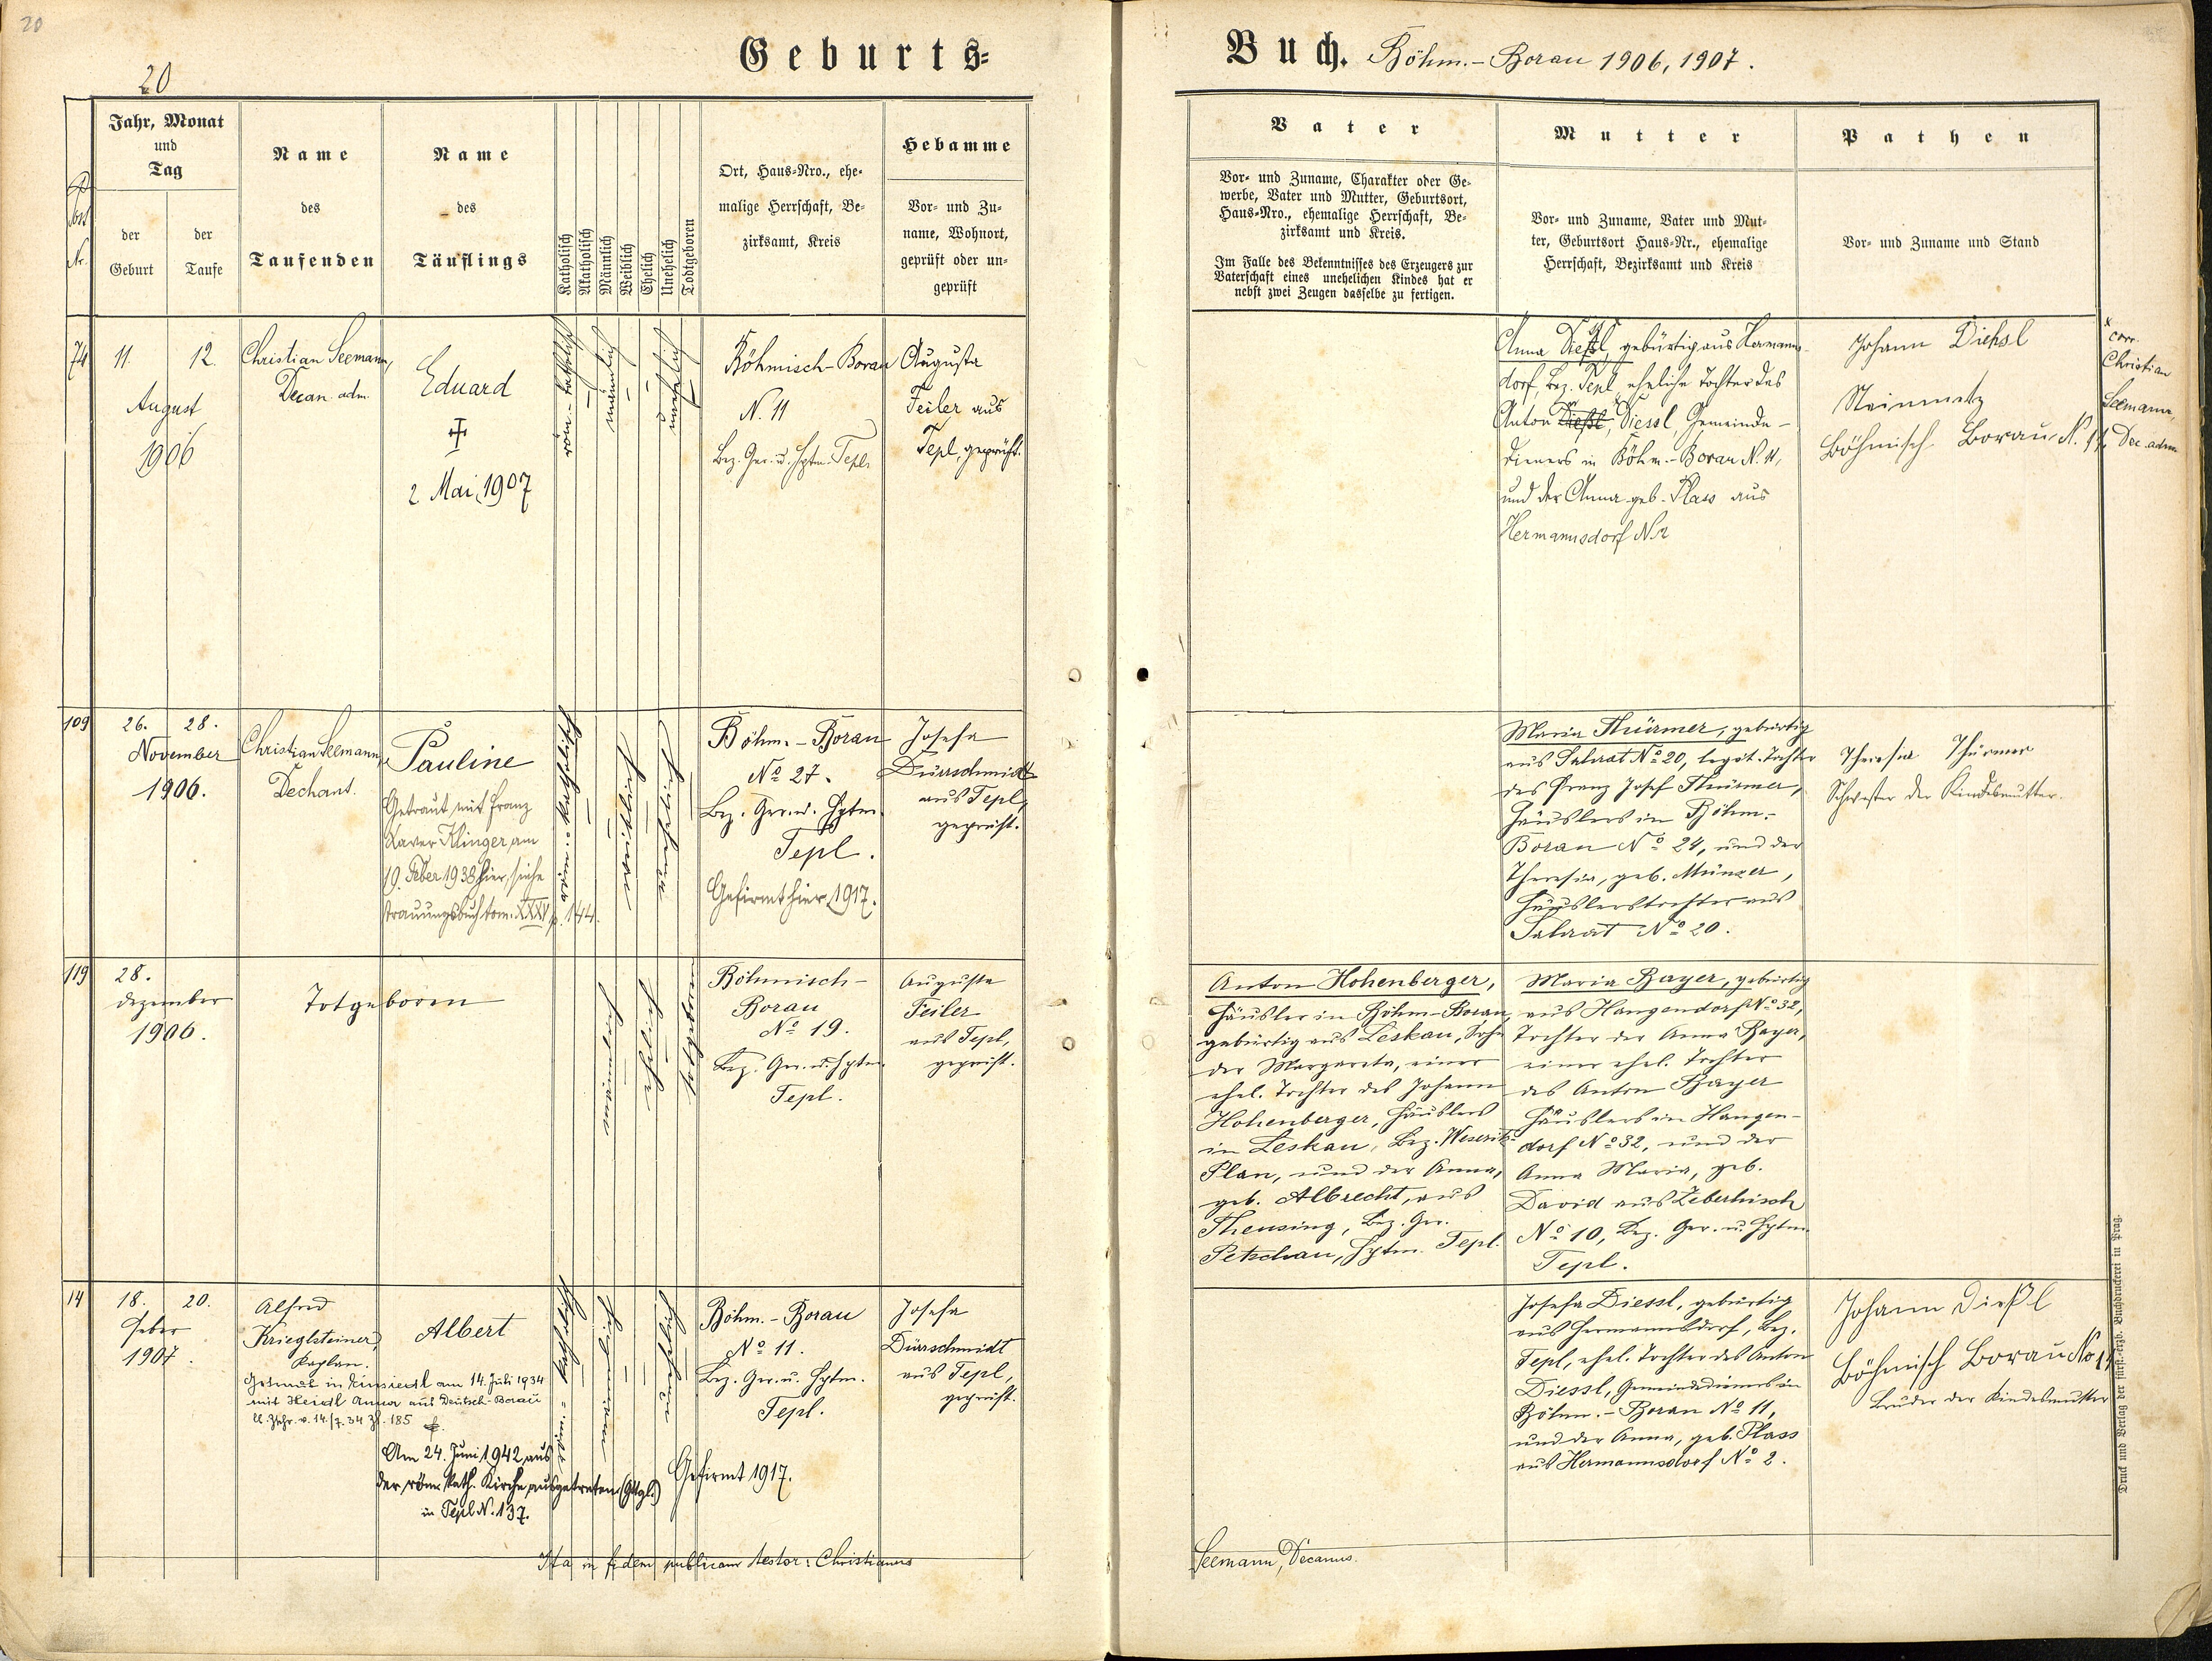 20
20
Geburts=
Post
Nr.
Jahr, Monat
und
Tag
der
Geburt
der
Taufe
Name
des
Taufenden
Name
des
Täuflings
Katholisch
Akatholisch
Männlich
Weiblich
Ehelich
Unehelich
Todtgeboren
Ort, Haus=Nro., ehe=
malige Herrschaft, Be=
zirksamt, Kreis
Hebamme
Vor= und Zu=
name, Wohnort,
geprüft oder un=
geprüft
74
11.
12.
August
1906
Christian Seemann,
Decan. adm.
Eduard
2 Mai 1907
röm.-katholisch
männlich
unehelich
Böhmisch-Borau
N. 11
Bez. Ger. u. Hptm. Tepl.
Augusta
Feiler aus
Tepl, geprüft.
109
26.
28.
November
1906.
Christian Seemann,
Dechant.
Pauline
Getraut mit Franz
Xaver Klinger am
19. Feber 1938 hier, siehe
Trauungsbuch tom. XXXV p. 144.
Böhm.-Borau
Nº 27.
Bez. Ger. u. Hptm.
Tepl.
Gefirmt hier 1917.
Josefa
Dürrschmidt
aus Tepl,
geprüft.
119
28.
Dezember
1906.
Totgeboren
totgeboren
Böhmisch-
Borau
Nº 19.
Bez. Ger. u. Hptm.
Tepl.
Augusta
Feiler
aus Tepl,
geprüft.
14
18.
20.
Feber
1907.
Alfred
Krieglsteiner,
Kaplan.
Albert
Getraut in Einsiedl am 14. Juli 1934
mit Heidl Anna aus Deutsch-Borau
lt. Zschr. v. 14./7. 34 Zl. 185
Am 24. Juni 1942 aus
der röm. kath. Kirche ausgetreten (Gttgl.)
in Tepl N. 137.
Böhm.-Borau
Nº 11.
Bez. Ger. u. Hptm.
Tepl.
Gefirmt 1917.
Josefa
Dürrschmidt
aus Tepl,
geprüft.
Ita in fidem publicam testor: Christianus
Buch. Böhm.-Borau 1906, 1907.
Vater
Vor= und Zuname, Charakter oder Ge=
werbe, Vater und Mutter, Geburtsort,
Haus=Nro., ehemalige Herrschaft, Be=
zirksamt und Kreis.
Im Falle des Bekenntnisses des Erzeugers zur
Vaterschaft eines unehelichen Kindes hat er
nebst zwei Zeugen dasselbe zu fertigen.
Mutter
Vor= und Zuname, Vater und Mut=
ter, Geburtsort Haus=Nr., ehemalige
Herrschaft, Bezirksamt und Kreis
Pathen
Vor= und Zuname und Stand
Anna Diessl, gebürtig aus Hermanns-
dorf, Bez. Tepl, eheliche Tochter des
Anton Dießl, Diessl, Gemeinde-
dieners in Böhm.-Borau N. 11,
und der Anna geb. Plass aus
Hermannsdorf N. 2
Johann Diehsl
Steinmetz
Böhmisch Borau N. 11
x
corr.
Christian
Seemann,
Dec. adm.
Maria Thürmer, gebürtig
aus Nº 20, legit. Tochter
des Franz Josef Thürmer,
Häuslers in Böhm.-
Borau Nº 24, und der
Theresia, geb. Münzer,
Häuslerstochter aus
Nº 20.
Theresia Thürmer
Schwester der Kindesmutter.
Anton Hohenberger,
Häusler in Böhm-Borau,
gebürtig aus Leskau, Sohn
der Margareta, einer
ehel. Tochter des Johann
Hohenberger, Häuslers
in Leskau, Bez. Weserits-
Plan, und der Anna,
geb. Albrecht, aus
Theusing, Bez. Ger.
Petschau, Hptm. Tepl.
Maria Bayer, gebürtig
aus Hangendorf Nº 32,
Tochter der Anna Bayer,
einer ehel. Tochter
des Anton Bayer
Häuslers in Hangen-
dorf Nº 32, und der
Anna Maria, geb.
David aus Zeberhisch
Nº 10, Bez. Ger. u. Hptm.
Tepl.
Josefa Diessl, gebürtig
aus Hermannsdorf, Bez.
Tepl, ehel. Tochter des Anton
Diessl, Gemeindedieners in
Böhm.-Borau Nº 11,
und der Anna, geb. Plass
aus Hermannsdorf Nº 2.
Johann Dießl
Böhmisch Borau No 11
Bruder der Kindesmutter
Seemann, Decanus.
Druck und Verlag der fürst.-erzb. Buchdruckerei in Prag.